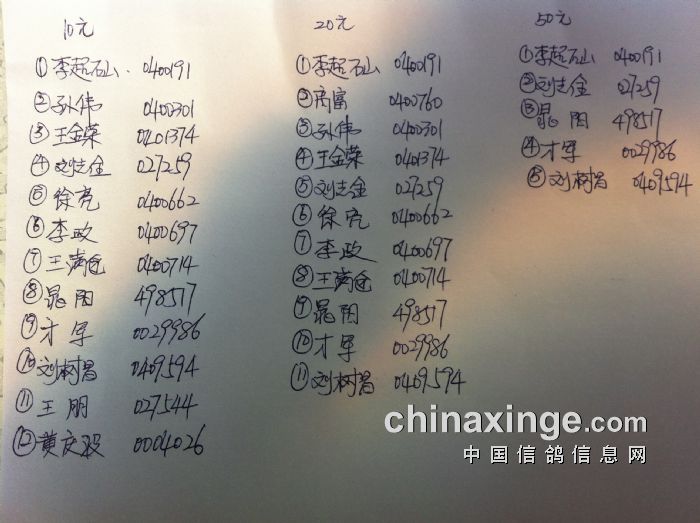 10元
①李起石山. 0400191
②孙伟 0400301
③王金荣 0401374
④刘志金 027259
⑤徐亮 0400662
⑥李政 0400697
⑦王满仓 0400714
⑧晁阳 498517
⑨才军 0029986
⑩刘树昌 0409594
⑪王朋 027544
⑫黄庆毅 0004026
20元
①李起石山 0400191
②商富 0400760
③孙伟 0400301
④王金荣 0401374
⑤刘志金 027259
⑥徐亮 0400662
⑦李政 0400697
⑧王满仓 0400714
⑨晁阳 498517
⑩才军 0029986
⑪刘树昌 0409594
50元
①李起石山 0400191
②刘志金 027259
③晁阳 498517
④才军 0029986
⑤刘树昌 0409594
chinaxinge.com
中国信鸽信息网